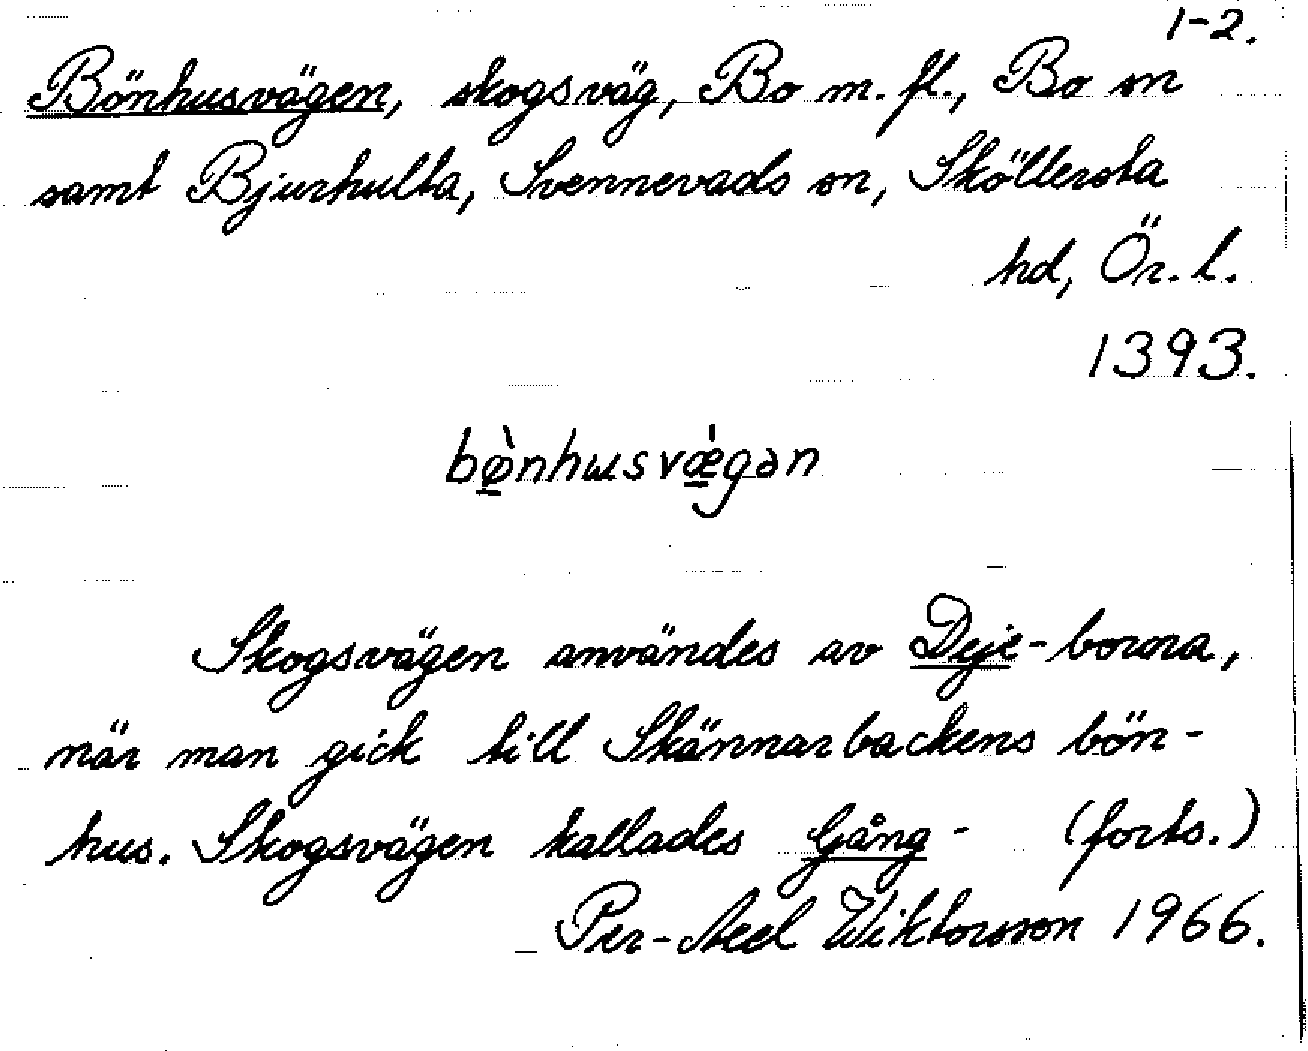 1-2.
Bönhusvägen, skogsväg, Bo m. fl., Bo sn
samt Bjurhulta, Svennevads sn, Sköllersta
hd, Ör. l.
1393.
bø̀nhusvǽgən
Skogsvägen användes av Deje-borna,
när man gick till Skännarbackens bön-
hus. Skogsvägen kallades Gång- (forts.)
Per-Axel Wiktorsson 1966.